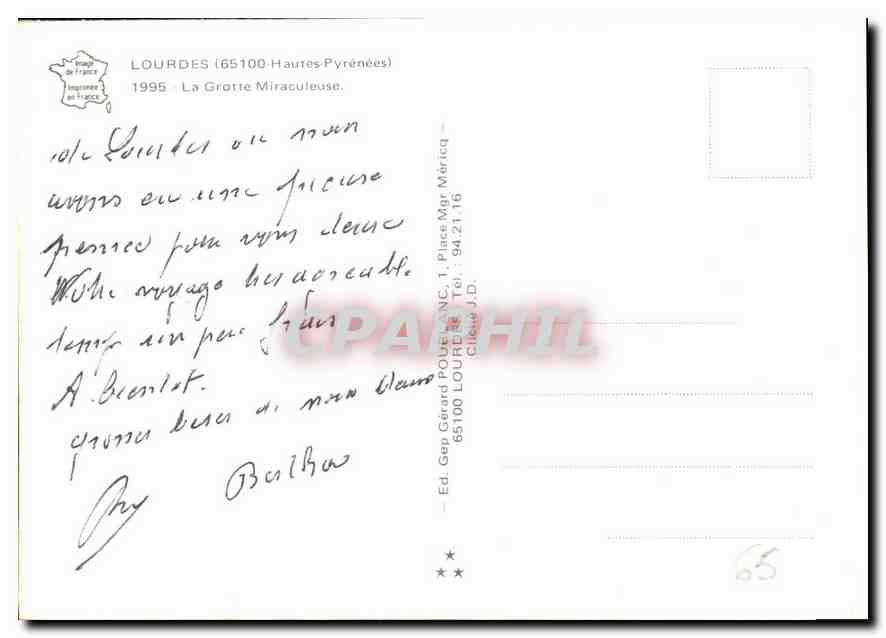 Image
de France
Imprimée
en France
LOURDES (65100-Hautes-Pyrénées)
1995 - La Grotte Miraculeuse.
de Lourdes ou nous
avons eu une
pensée pour vous deux
voyage tres agreable
temps un peu frais
A bientot.
grosses bises de nous deux
— Ed. Gep Gérard POUBLANC, 1, Place Mgr Méricq —
65100 LOURDES Tél. : 94.21.16
Cliché J.D.
CPAPHIL
65